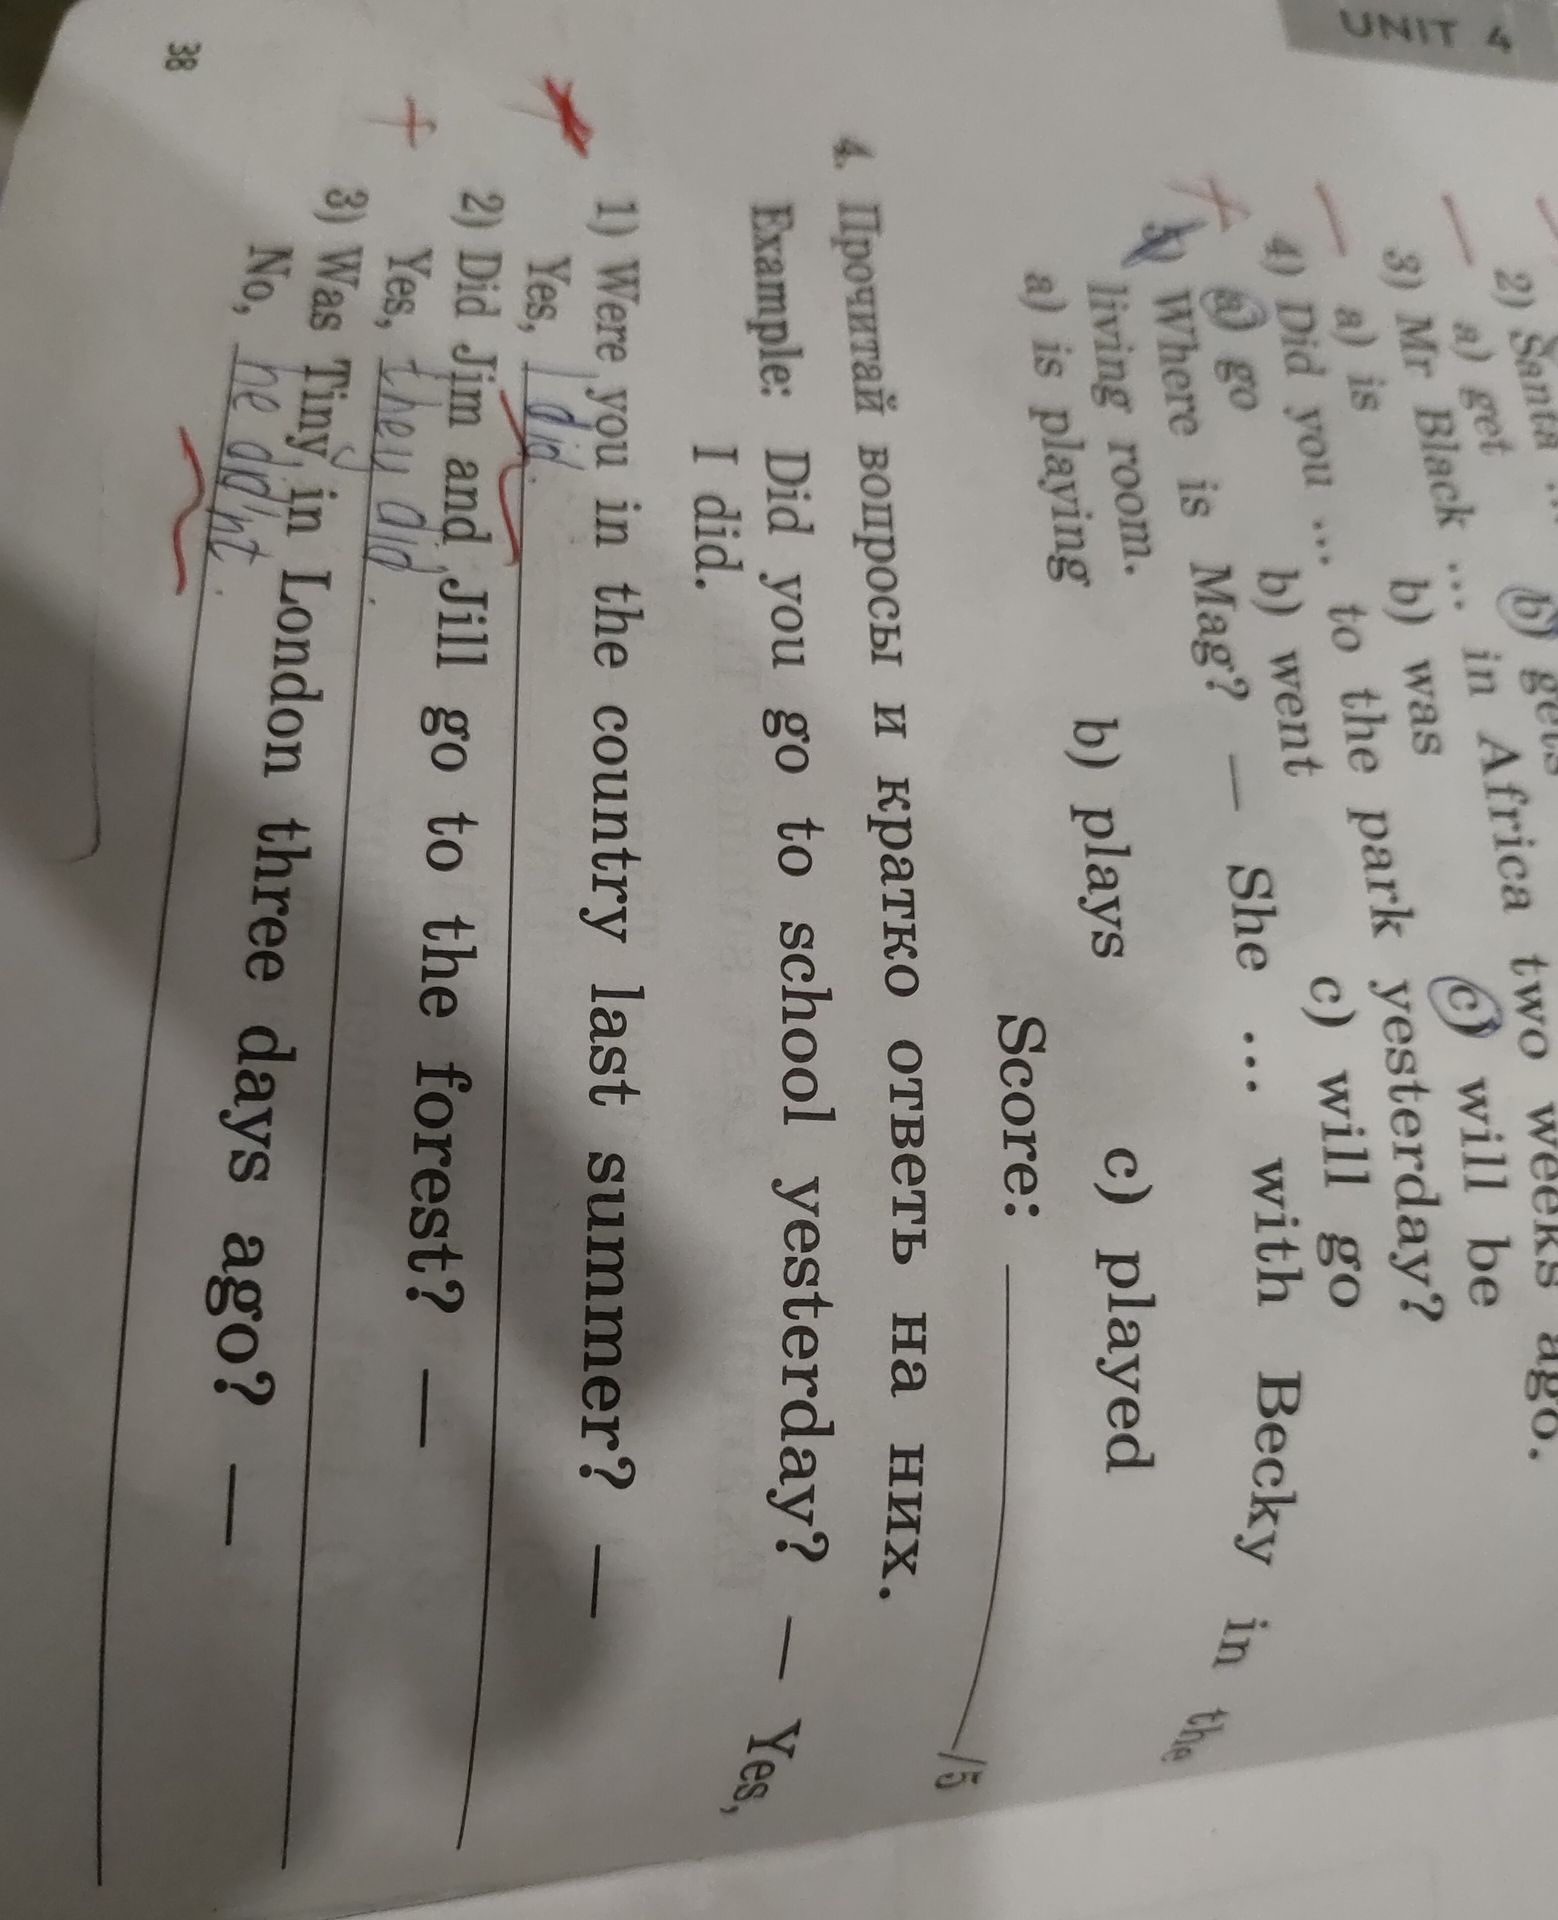 UNIT 4
2) Santa ...
two weeks ago.
a) get b) gets
3) Mr Black ... in Africa two weeks ago.
a) is b) was c) will be
4) Did you ... to the park yesterday?
a) go b) went c) will go
5) Where is Mag? — She ... with Becky in the
living room.
a) is playing b) plays c) played
Score: /5
4. Прочитай вопросы и кратко ответь на них.
Example: Did you go to school yesterday? — Yes,
I did.
1) Were you in the country last summer? —
Yes, I did.
2) Did Jim and Jill go to the forest? —
Yes, they did.
3) Was Tiny in London three days ago? —
No, he did'nt.
38